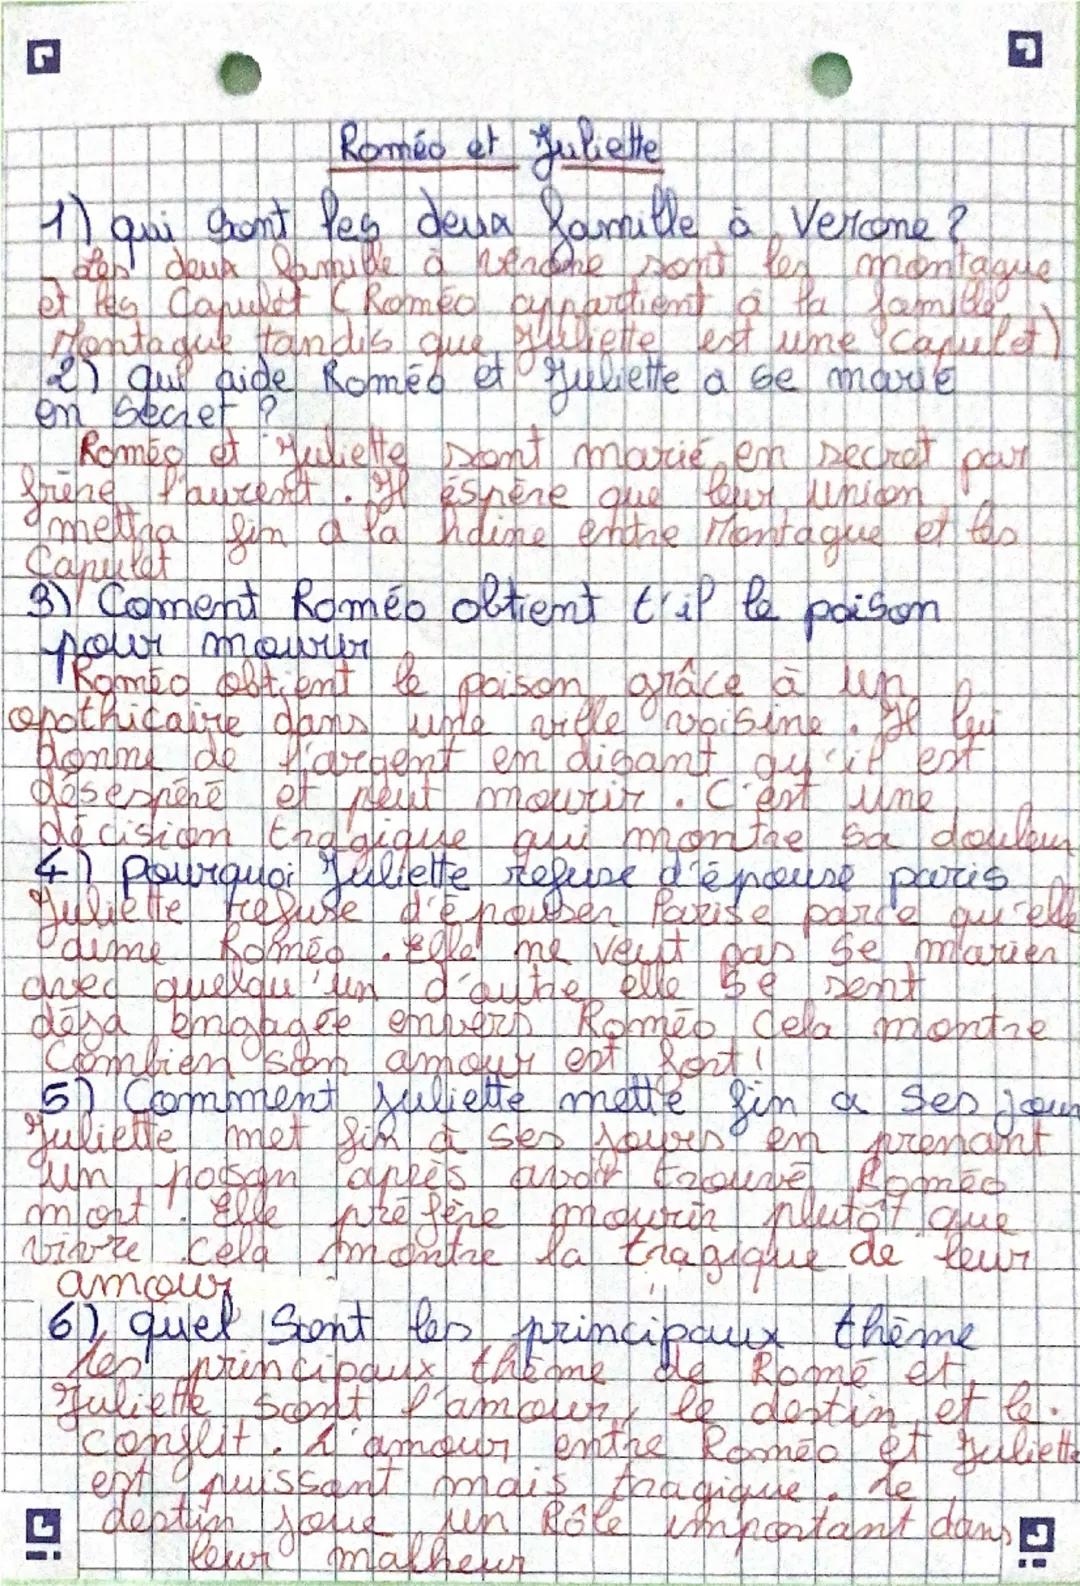 Roméo et Juliette
1) qui sont les deux famille à Verone ?
Les deux famille à Verone sont les montague
et les Capulet (Roméo appartient à la famille
Montague tandis que Juliette est une Capulet)
2) qui aide Roméo et Juliette a se marié
en secret ?
Roméo et Juliette sont marié en secret par
frère l'aurent. Il éspère que leur union
mettra fin a la haine entre Montague et les
Capulet
3) Coment Roméo obtient t'il le poison
pour mourir
Roméo obtient le poison grâce à un
apothicaire dans une ville voisine. Il lui
donne de l'argent en disant qu'il est
désespéré et peut mourir. C'est une
décision tragique qui montre sa douleur
4) pourquoi Juliette refuse d'épouse paris
Juliette refuse d'épouser Parise parce qu'elle
aime Roméo. Elle ne veut pas se marier
avec quelqu'un d'autre elle se sent
déja engagée envers Roméo Cela montre
Combien son amour est fort !
5) Comment Juliette mette fin a ses jour
Juliette met fin à ses jours en prenant
un poison après avoir trouvé Roméo
mort. Elle préfère mourir plutôt que
vivre. Cela montre la tragique de leur
amour
6) quel sont les principaux thème
Les principaux thème de Romé et
Juliette sont l'amour, le destin et le.
conflit. L'amour entre Roméo et Juliette
est puissant mais tragique. Le
destin joue un Rôle important dans
leur malheur